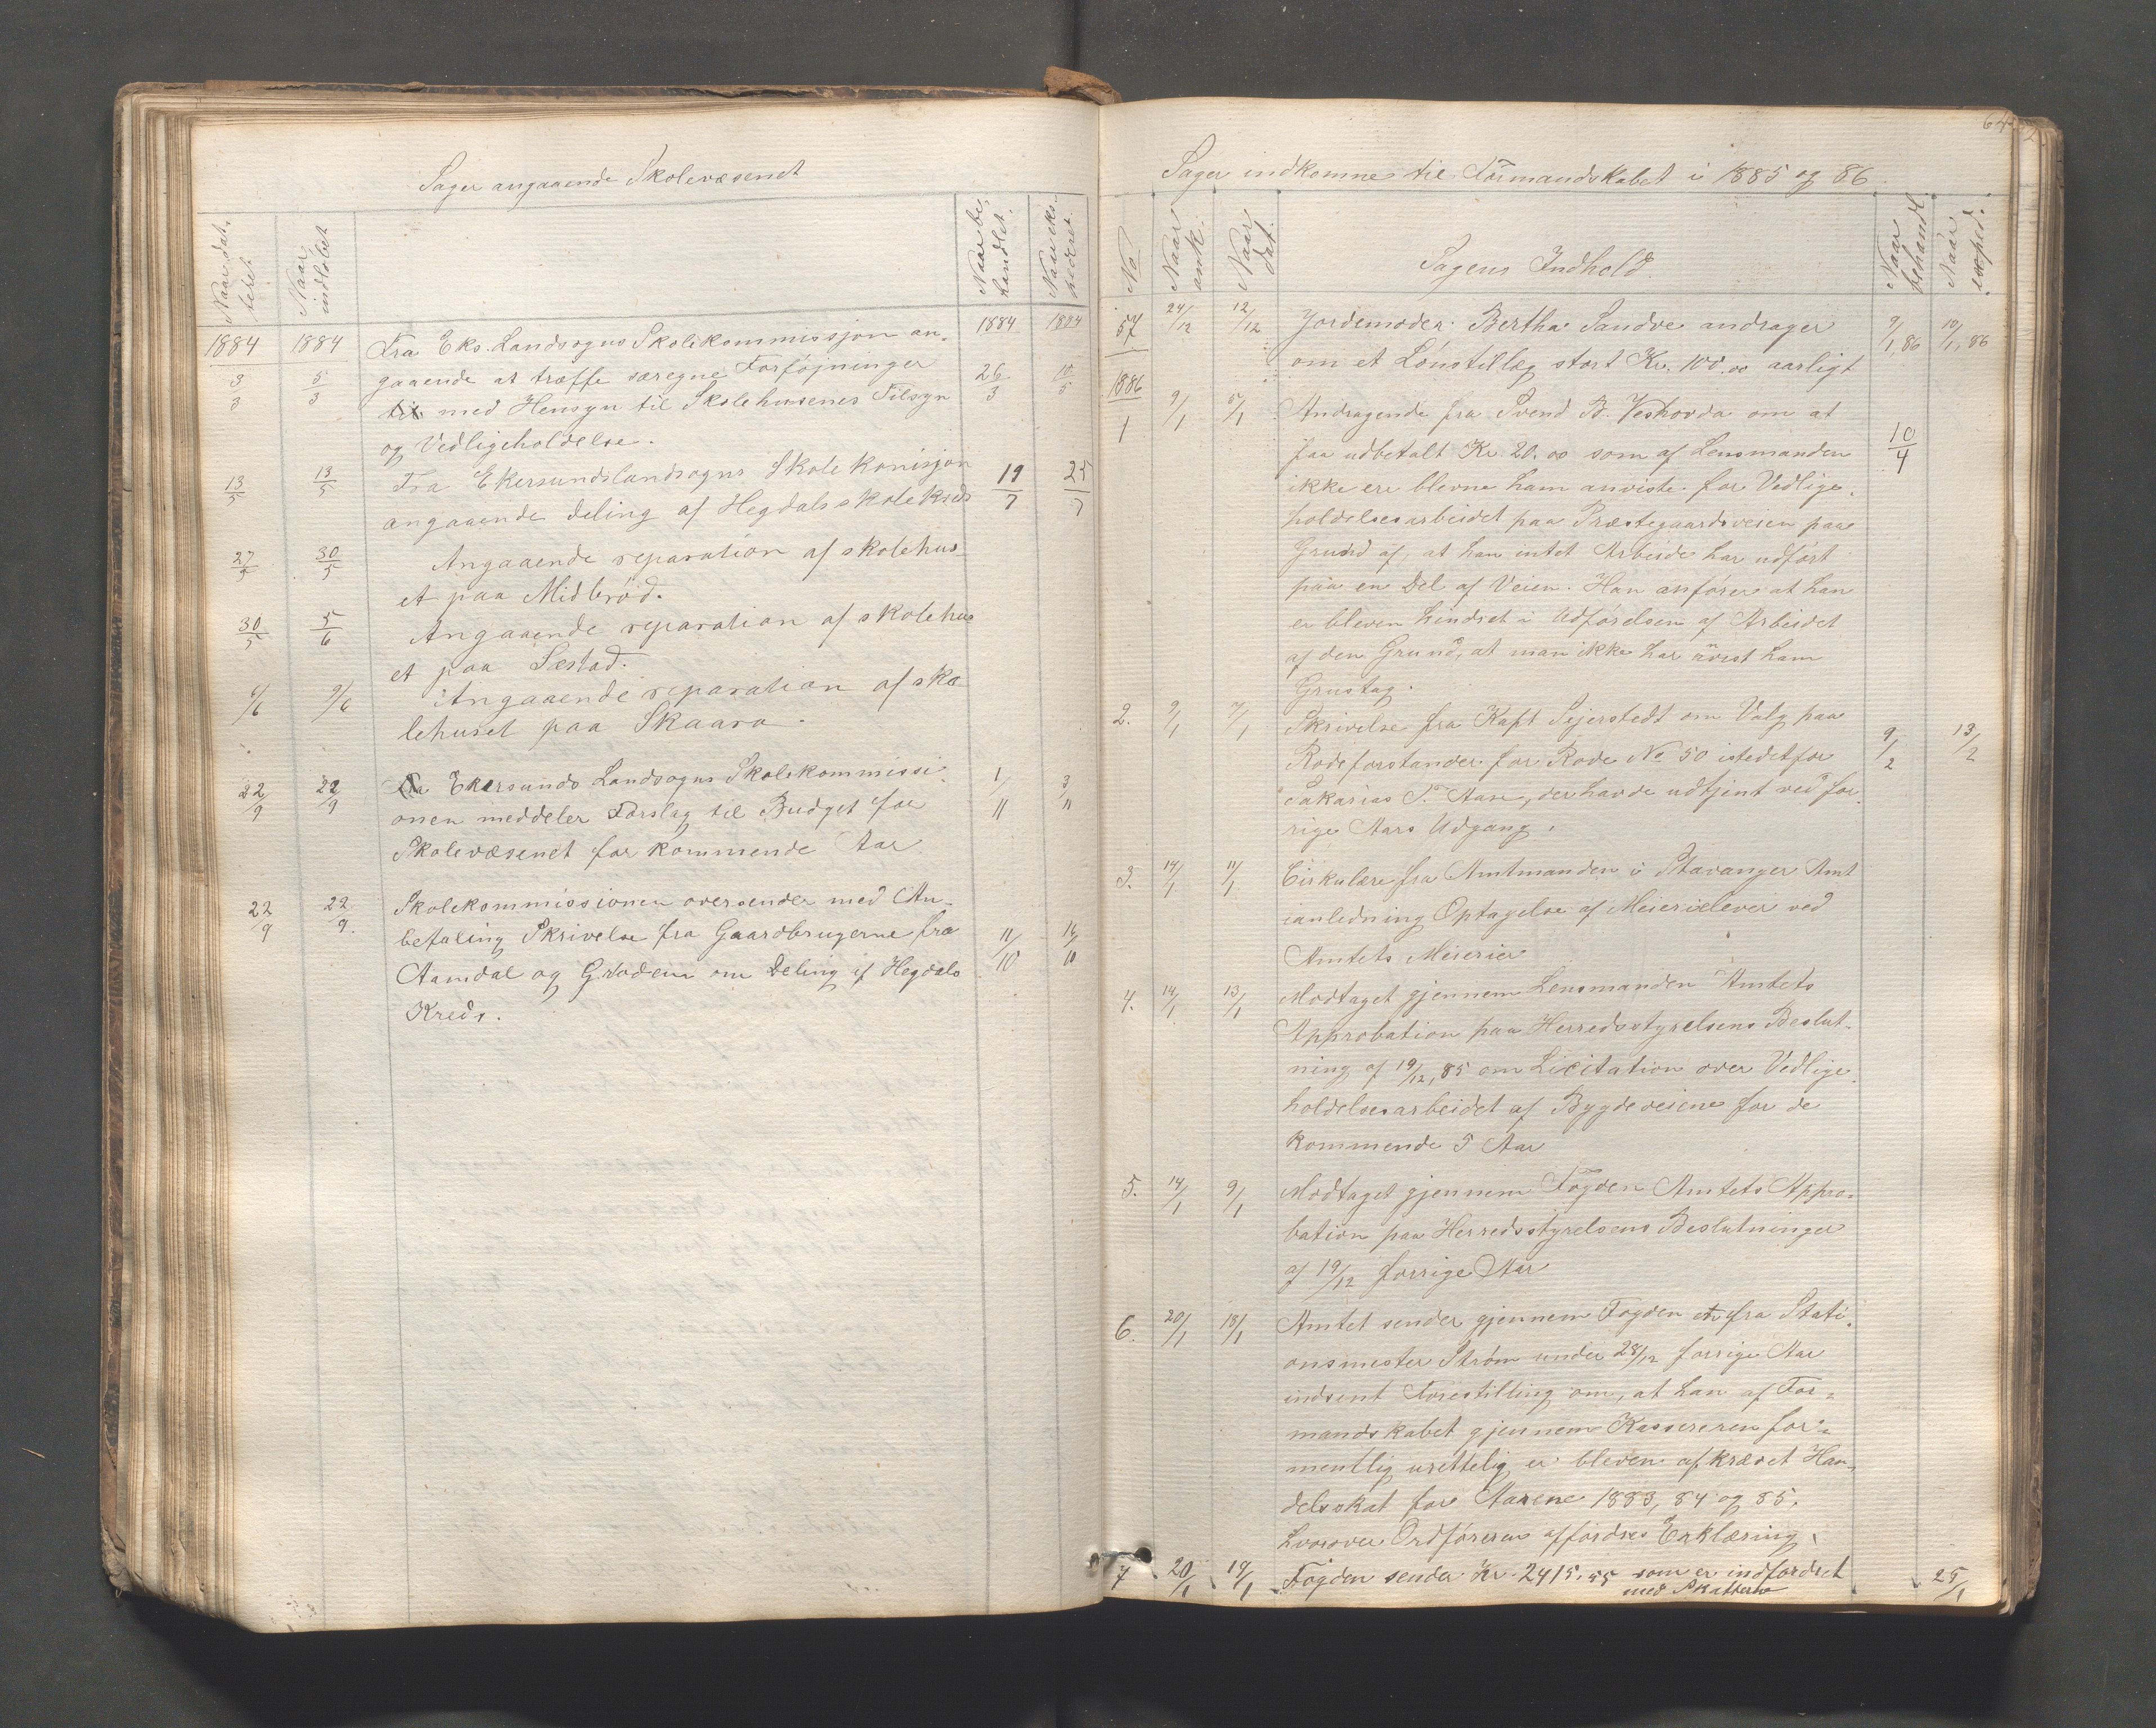 Sager angaaende Skolevæsenet
Naar dateret. Naar indløbet Naar behandlet. Naar ekspederet.
1884 1884 Fra Eks. Landsogns Skolekommissjon an- 1884 1884
3/3 5/3 gaaende at træffe særegne Forføjninger 26/3 10/5
til med Hensyn til Skolehusenes Tilsyn
og Vedligeholdelse.
13/5 13/5 Fra Ekersundslandsogns Skole Komisjon 19/7 25/7
angaaende deling af Hegdals skolekreds
27/5 30/5 Angaaende reparation af skolehus
et paa Midbröd.
30/5 5/6 Angaaende reparation af skolehus
et paa Sæstad.
6/6 9/6 Angaaende reparation af sko
lehuset paa Skaara.
22/9 22/9 Fra Ekersunds Landsogns Skolekommissi- 1/11 3/11
onen meddeler Forslag til Budget for
Skolevæsenet for kommende Aar
22/9 22/9. Skolekommissionen oversender med An-
befaling Skrivelse fra Gaardbrugerne fra 11/10 16/10
Aamdal og Grøden om Deling af Hegdals
Kreds.
64
Sager indkomne til Formandskabet i 1885 og 86
No Naar ank. Naar dat. Sagens Indhold. Naar behandl. Naar exped.
57 24/12 12/12 Jordemoder Bertha Sandve andrager 9/1, 86 10/1, 86
om et Lönstillæg stort Kr. 100.00 aarligt
1886
1 9/1 5/1 Andragende fra Svend B. Veshovda om at
faa udbetalt Kr. 20.00 som af Lensmanden 10/4
ikke ere blevne ham anviste for Vedlige-
holdelsesarbeidet paa Præstegaardsveien paa
Grund af, at han intet Arbeide har udført
paa en Del af Veien. Han anfører at han
er bleven hindret i Udførelsen af Arbeidet
af den Grund, at man ikke har anvist ham
Grustag.
2. 9/1 7/1 Skrivelse fra Kapt Sejerstedt om Valg paa
Rodeforstander for Rode No 50 istedetfor 9/2 13/2
Sakarias S. Aase, der havde udtjent ved for-
rige Aars Udgang.
3. 14/1 11/1 Cirkulære fra Amtmanden i Stavanger Amt
ianledning Optagelse af Meierielever ved
Amtets Meierier
4. 14/1 13/1 Modtaget gjennem Lensmanden Amtets
Approbation paa Herredsstyrelsens Beslut-
ning af 19/12, 85 om Licitation over Vedlige-
holdelsesarbeidet af Bygdeveiene for de
kommende 5 Aar
5. 14/1 9/1 Modtaget gjennem Fogden Amtets Appro-
bation paa Herredsstyrelsens Beslutninger
af 19/12 forrige Aar
6. 20/1 18/1 Amtet sender gjennem Fogden en fra Stati-
onsmester Strøm under 28/12 forrige Aar
indsent Forestilling om, at han af For-
mandskabet gjennem Kassereren for-
mentlig urettelig er bleven afkrævet Han-
delsskat for Aarene 1883, 84 og 85,
hvorover Ordføreren affordres Erklæring.
7 20/1 19/1 Fogden sender Kr. 2415.55 som er indfordret 25/1
med Skatterne